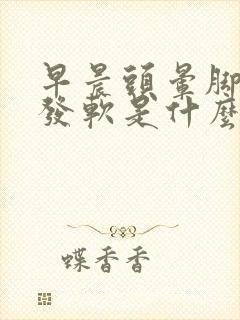 早晨頭暈腳
發軟是什麼
蝶香香